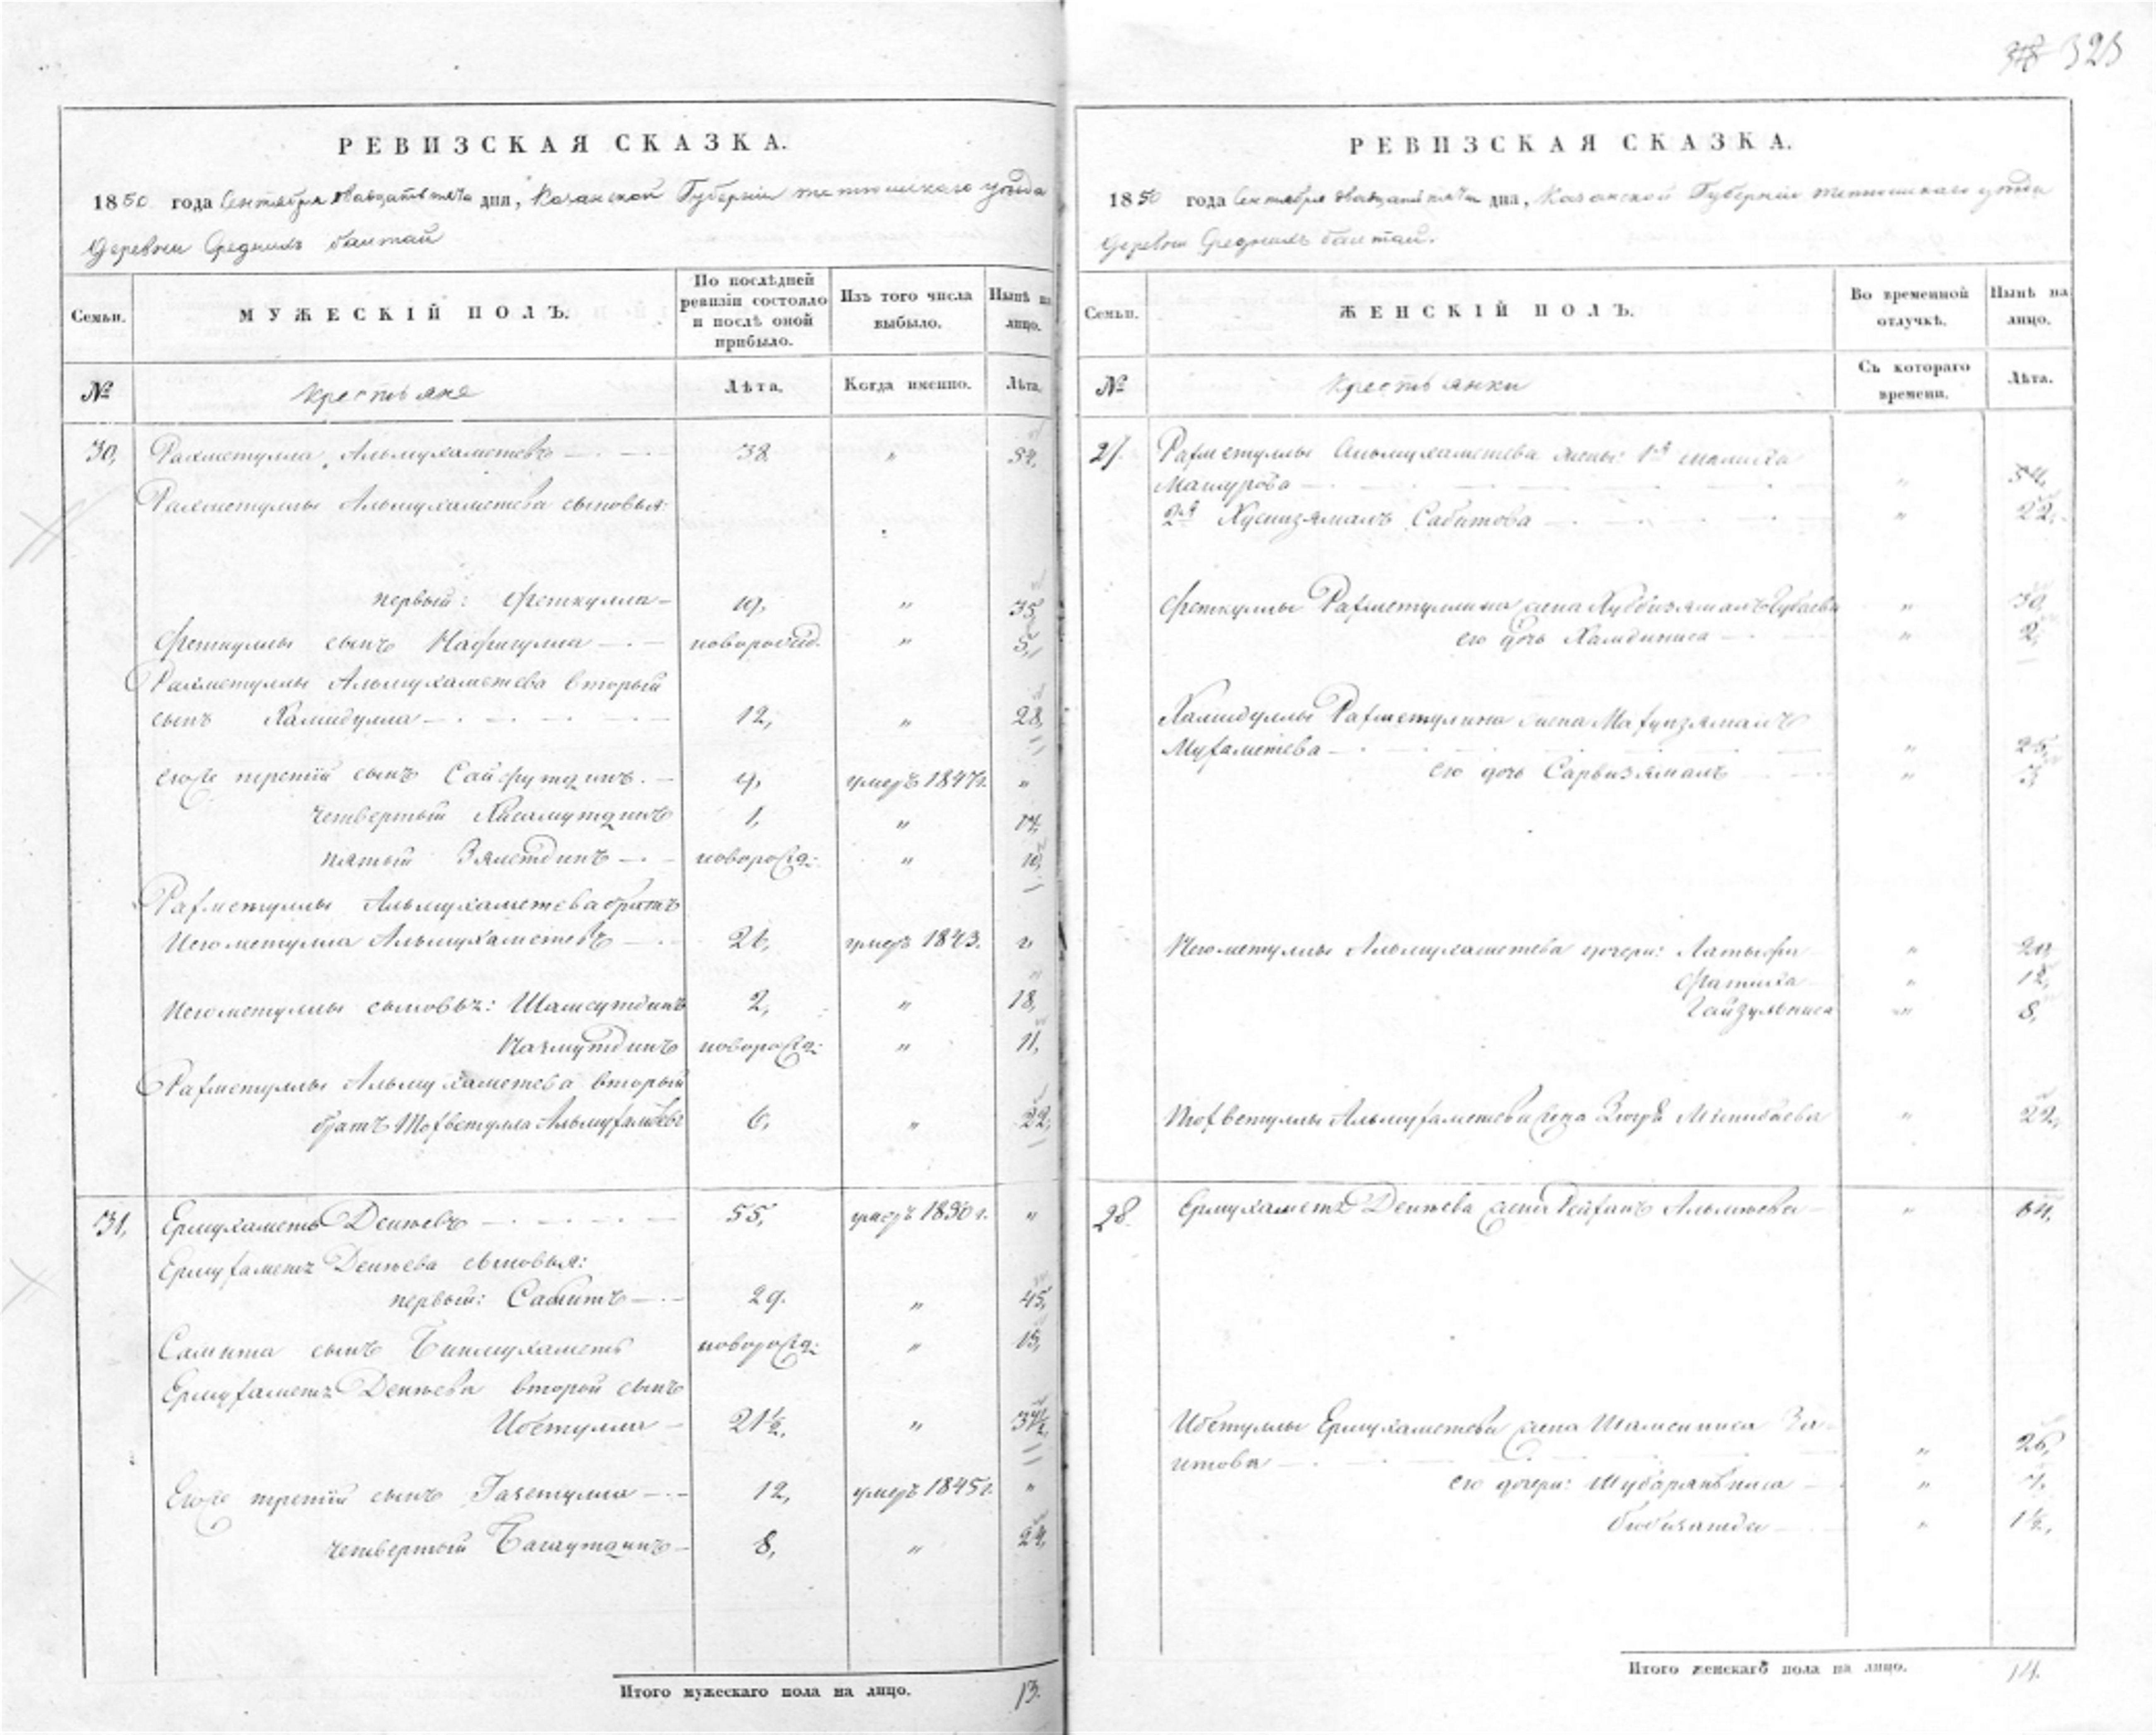 325
РЕВИЗСКАЯ СКАЗКА.
1850 года Сентября двадцать пятаго дня, Казанской Губерніи Тетюшскаго уѣзда
Деревни Среднихъ Балтай
Семьи.
МУЖЕСКІЙ ПОЛЪ.
По послѣдней ревизіи состояло и послѣ оной прибыло.
Изъ того числа выбыло.
Нынѣ на лицо.
№
Крестьяне
Лѣта.
Когда именно.
Лѣта.
30, Рахметулла Альмухаметевъ 38 " 54,
Рахметуллы Альмухаметева сыновья:
первый: Феткулла 19, " 35,
Феткуллы сынъ Нафигулла новорожд. " 5,
Рахметуллы Альмухаметева вторый
сынъ Хамидулла 12, " 28,
егоже третій сынъ Сайфутдинъ. 9, умеръ 1847г. "
четвертый Хисамутдинъ 1, " 17,
пятый Зяметдинъ новорожд: " 10,
Рахметуллы Альмухаметева братъ
Негометулла Альмухаметевъ 24, умеръ 1843. "
Негометуллы сыновья: Шамсутдинъ 2, " 18,
Назмутдинъ новорожд: " 11,
Рахметуллы Альмухаметева вторый
братъ Тохветулла Альмухаметевъ 6, " 22,
31, Ермухаметъ Денѣевъ 55, умеръ 1850 г. "
Ермухаметя Денѣева сыновья:
первый: Сабитъ 29. " 45,
Сабита сынъ Бикмухаметъ новорожд: " 15,
Ермухаметя Денѣева второй сынъ
Ибетулла 21½, " 37½,
Егоже третій сынъ Газетулла 12, умеръ 1845г. "
четвертый Багаутдинъ 8, " 24,
Итого мужескаго пола на лицо. 13.
РЕВИЗСКАЯ СКАЗКА.
1850 года Сентября двадцать пятаго дня, Казанской Губерніи Тетюшскаго уѣзда
Деревни Среднихъ Балтай.
Семьи.
ЖЕНСКІЙ ПОЛЪ.
Во временной отлучкѣ.
Нынѣ на лицо.
№
Крестьянки
Съ котораго времени.
Лѣта.
27. Рахметуллы Альмухаметева жены: 1я
Машурова " 54,
2я Хуснизямалъ Сабитова " 22,
Феткуллы Рахметуллина жена Хубдизямалъ " 30,
его дочь Хамдиниса " 2,
Хамидуллы Рахметуллина жена Махупзямалъ
Мухаметева " 25,
его дочь Сарвизямалъ " 3,
Негометуллы Альмухаметева дочери: Латыфа " 20,
Фатиха " 12,
Гайзульниса " 8,
Тохветуллы Альмухаметева жена Зюгра Минибаева " 22,
28. Ермухаметя Денѣева жена Рейханъ " 64,
Ибетуллы Ермухаметева жена Шамсиниса За-
итова " 26,
его дочери: Мубаряквниса " 7,
Бибизайда " 1½,
Итого женскаго пола на лицо. 14.